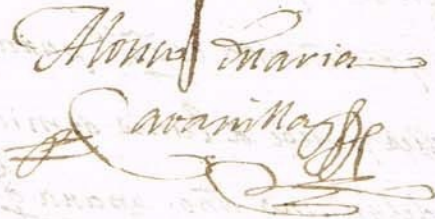 Alonso Maria
Cavanilla